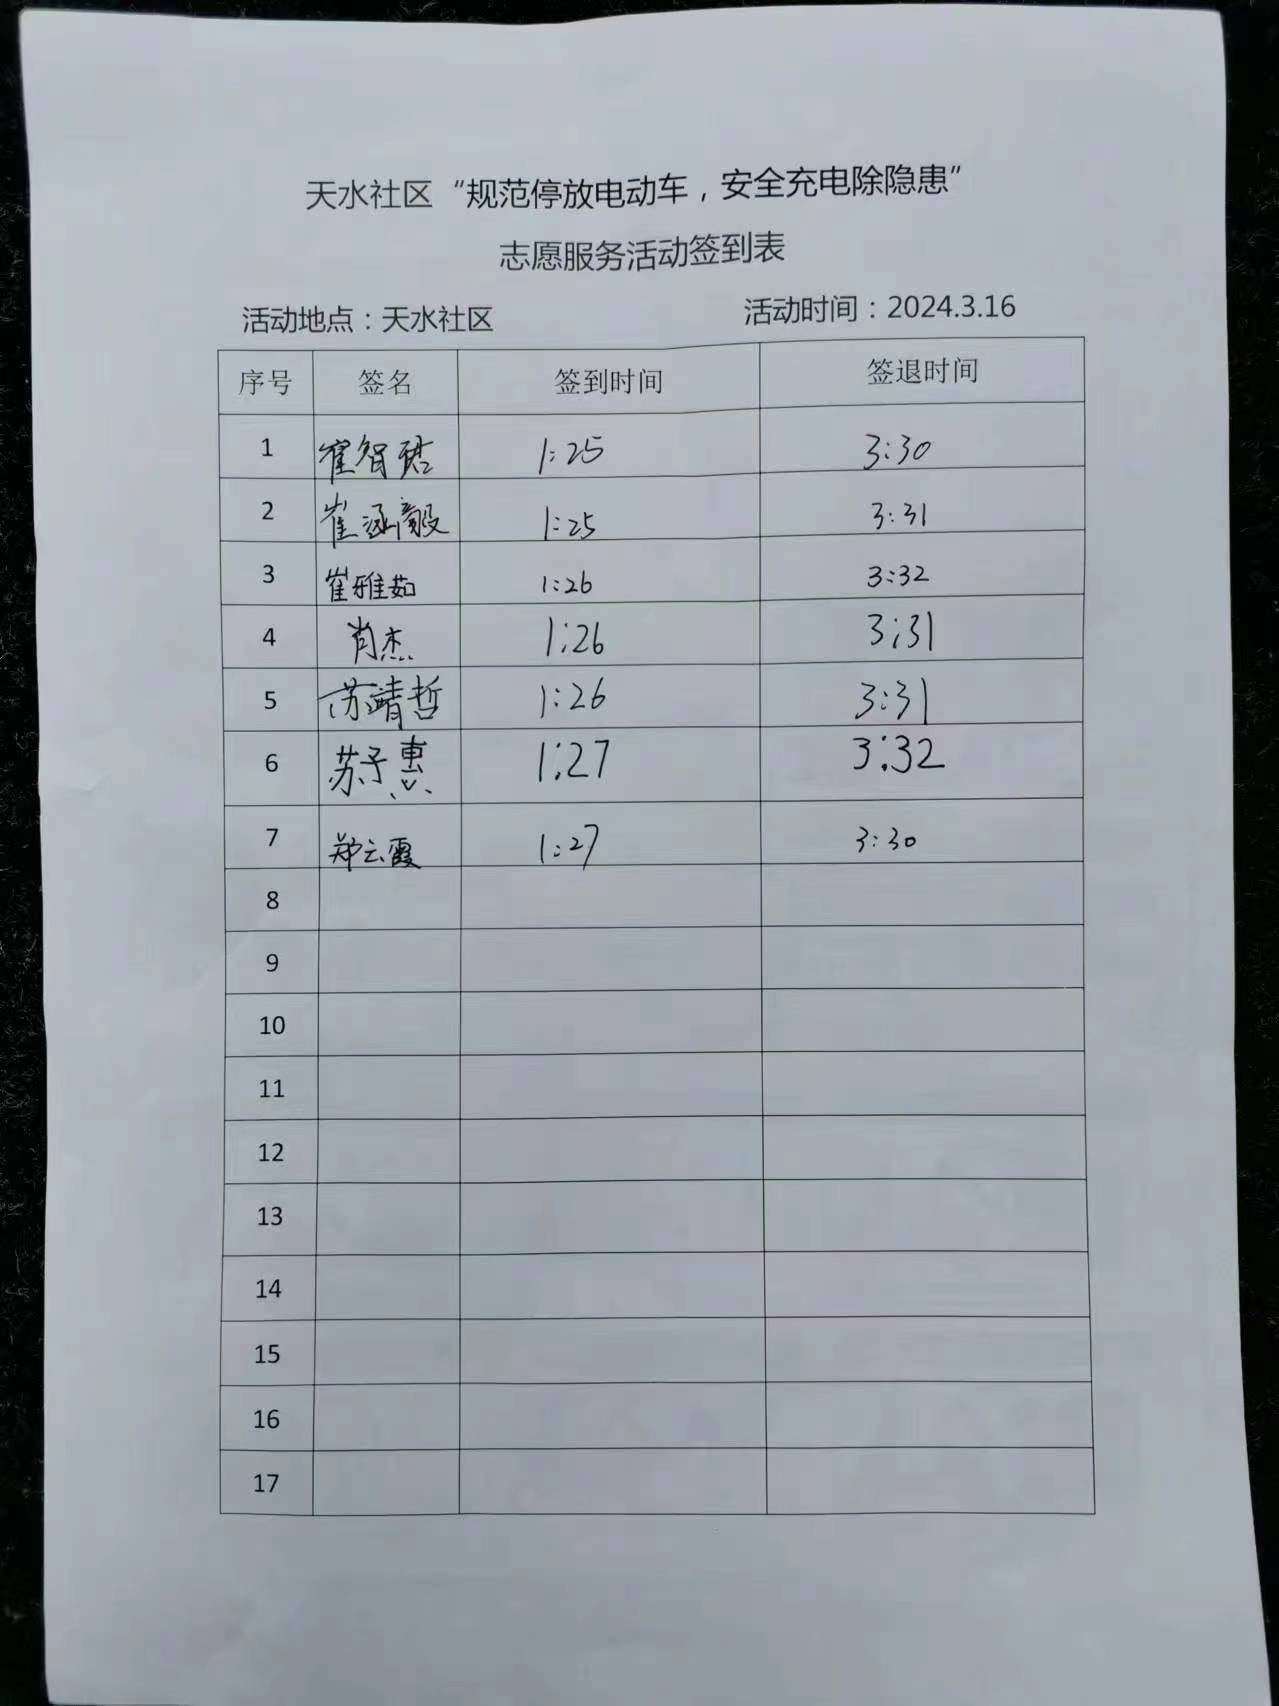 天水社区“规范停放电动车，安全充电除隐患”
志愿服务活动签到表
活动地点：天水社区 活动时间：2024.3.16
序号 签名 签到时间 签退时间
1 崔智珺 1:25 3:30
2 崔涵毅 1:25 3:31
3 崔雅茹 1:26 3:32
4 肖杰 1:26 3:31
5 苏靖哲 1:26 3:31
6 苏予惠 1:27 3:32
7 郑云霞 1:27 3:30
8
9
10
11
12
13
14
15
16
17